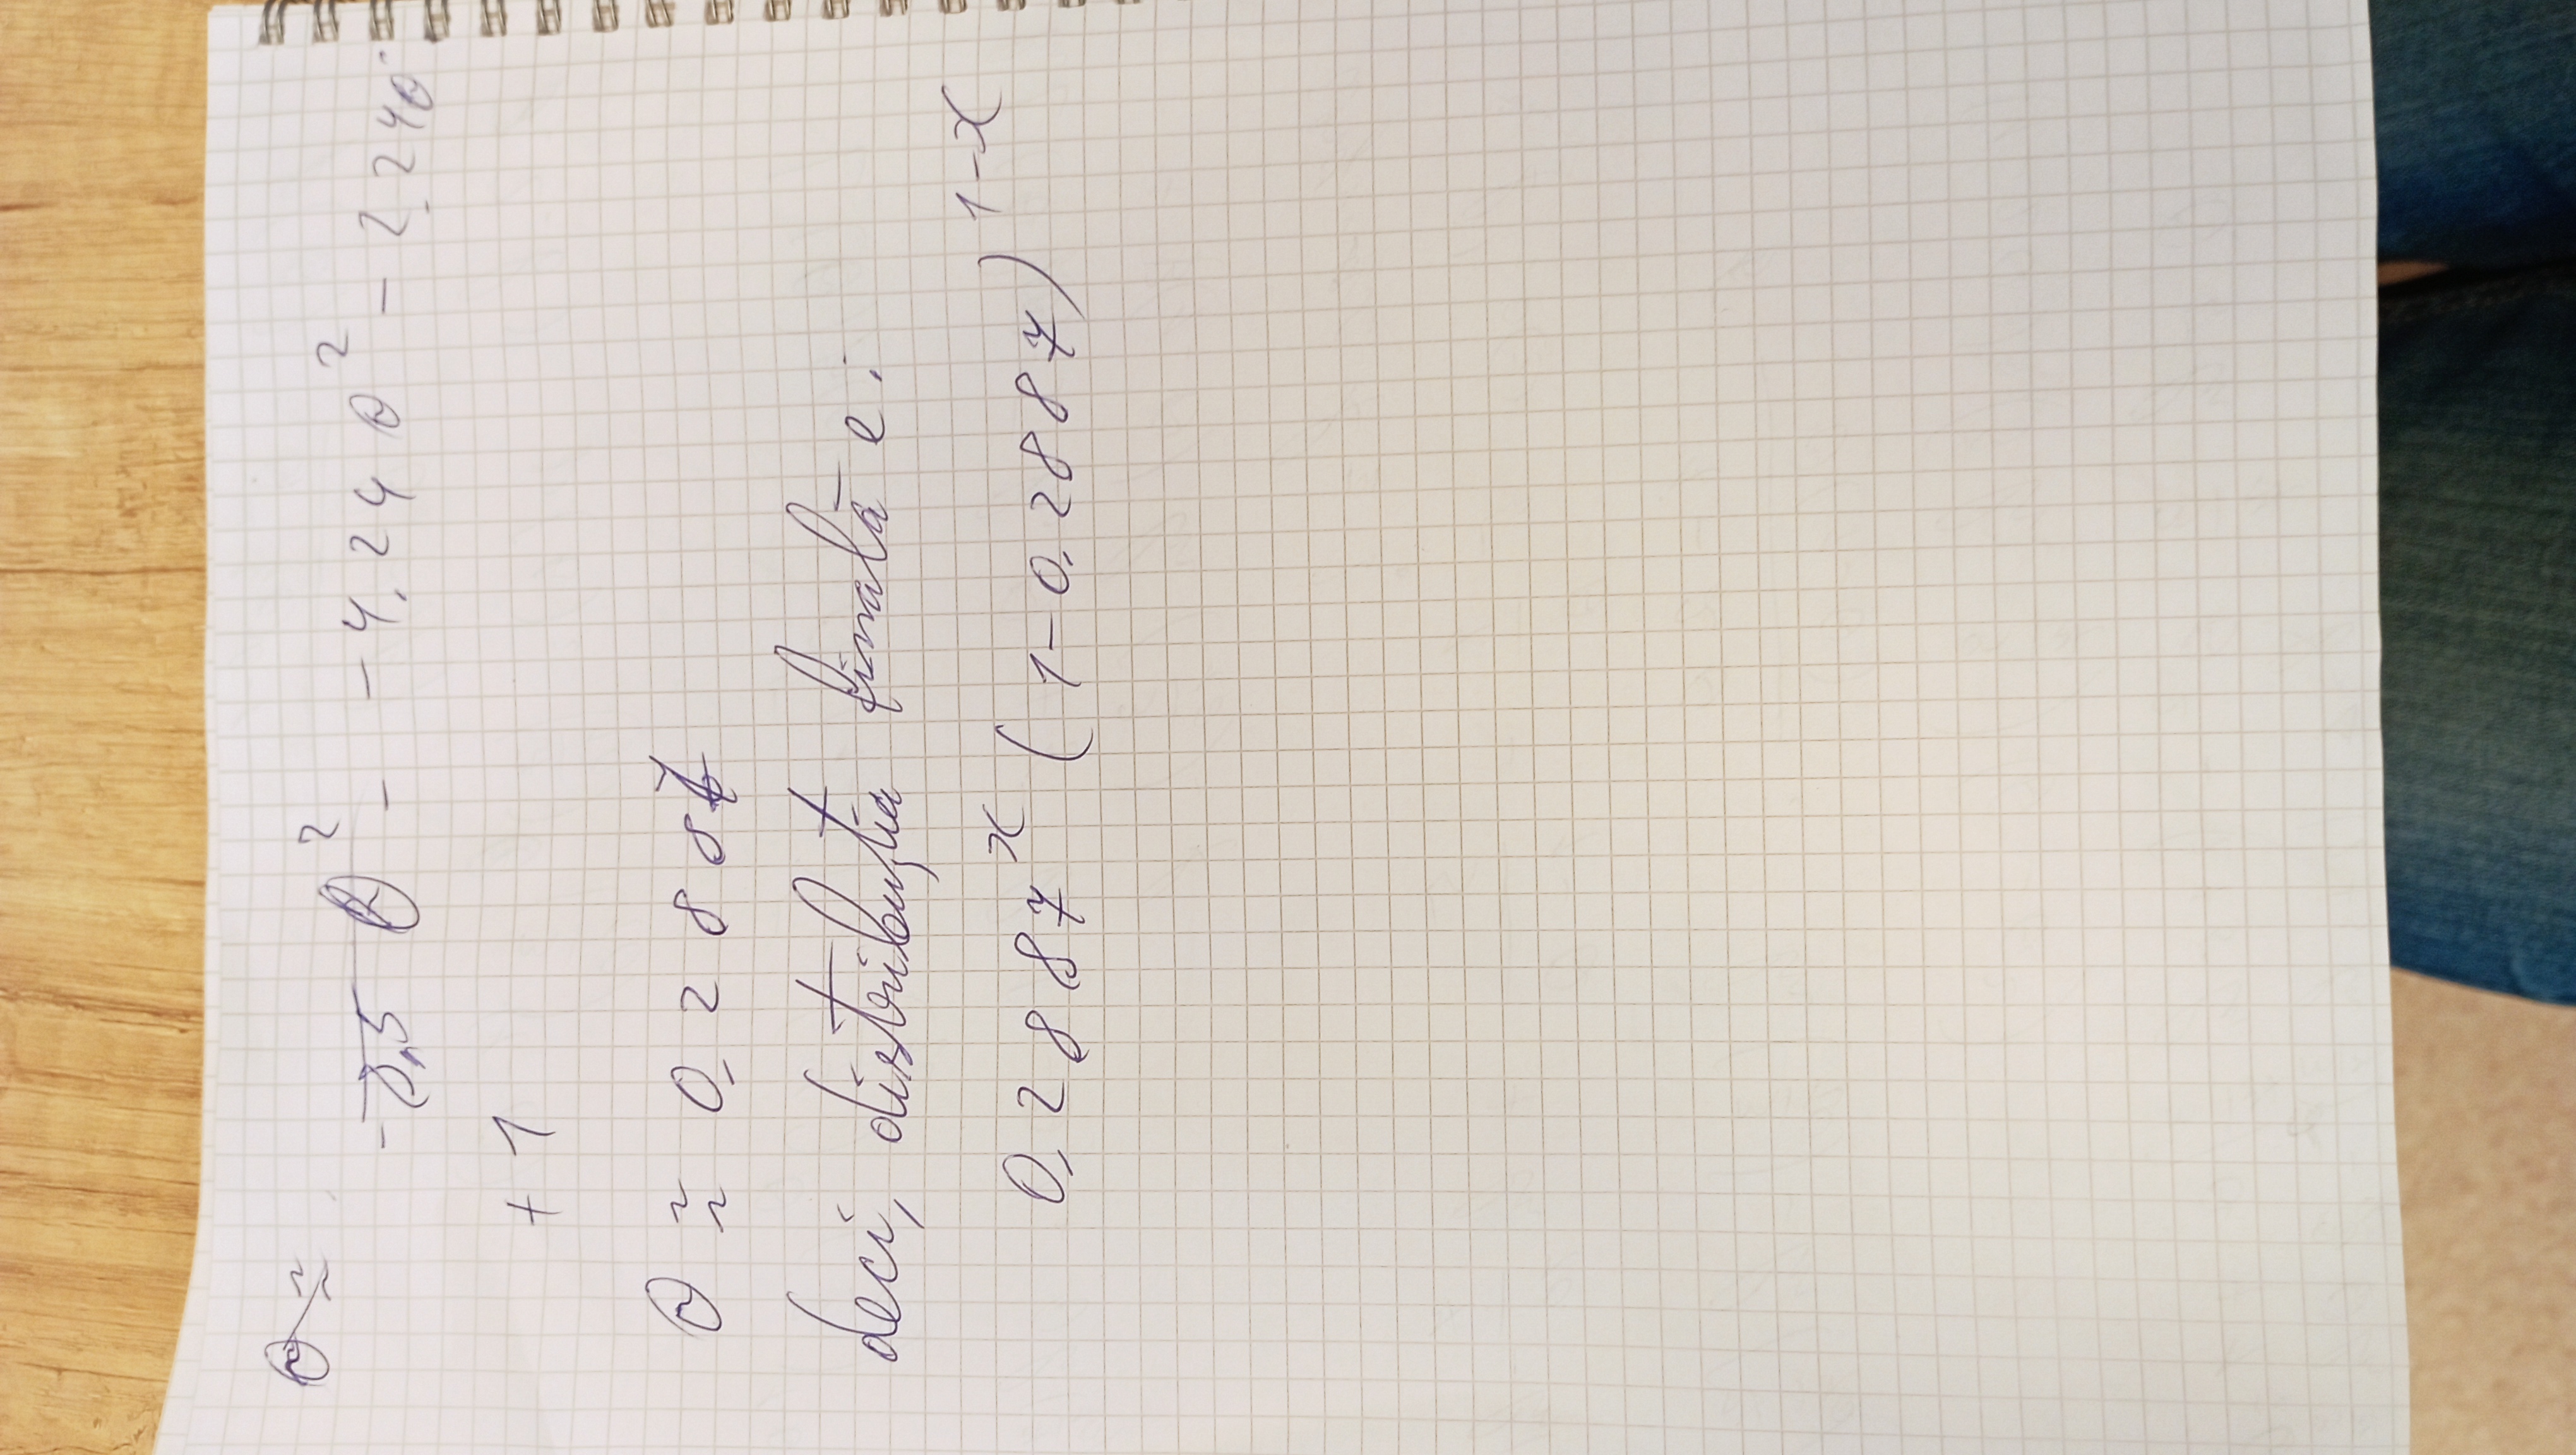 θ ≈
- 8,5 θ² - - 4.24 θ² - 2.24θ
+ 1
θ ≈ 0,2887
deci, distribuția finală e:
0,2887ˣ (1-0.2887)¹⁻ˣ